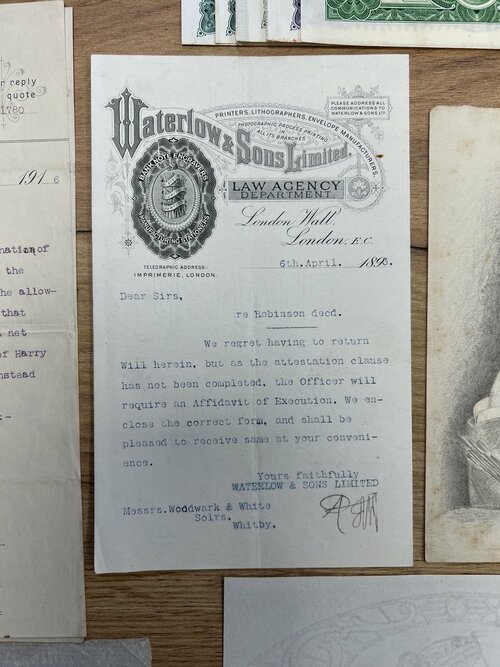 r reply
quote
1780
191 6
nation of
the
he allow-
that
net
of Harry
nstead
:-
Waterlow & Sons Limited.
PRINTERS, LITHOGRAPHERS, ENVELOPE MANUFACTURERS,
PHOTOGRAPHIC PROCESS PRINTING
IN
ALL ITS BRANCHES
PLEASE ADDRESS ALL
COMMUNICATIONS TO
WATERLOW & SONS LTD
BANK NOTE ENGRAVERS
MANUFACTURING STATIONERS
LAW AGENCY
DEPARTMENT
London Wall
London, E.C.
TELEGRAPHIC ADDRESS:-
IMPRIMERIE, LONDON.
6th. April. 1893.
Dear Sirs,
re Robinson decd.
We regret having to return
Will herein, but as the attestation clause
has not been completed, the Officer will
require an Affidavit of Execution. We en-
close the correct form, and shall be
pleased to receive same at your conveni-
ence.
Yours faithfully
WATERLOW & SONS LIMITED
Messrs. Woodwark & White
Solrs.
Whitby.